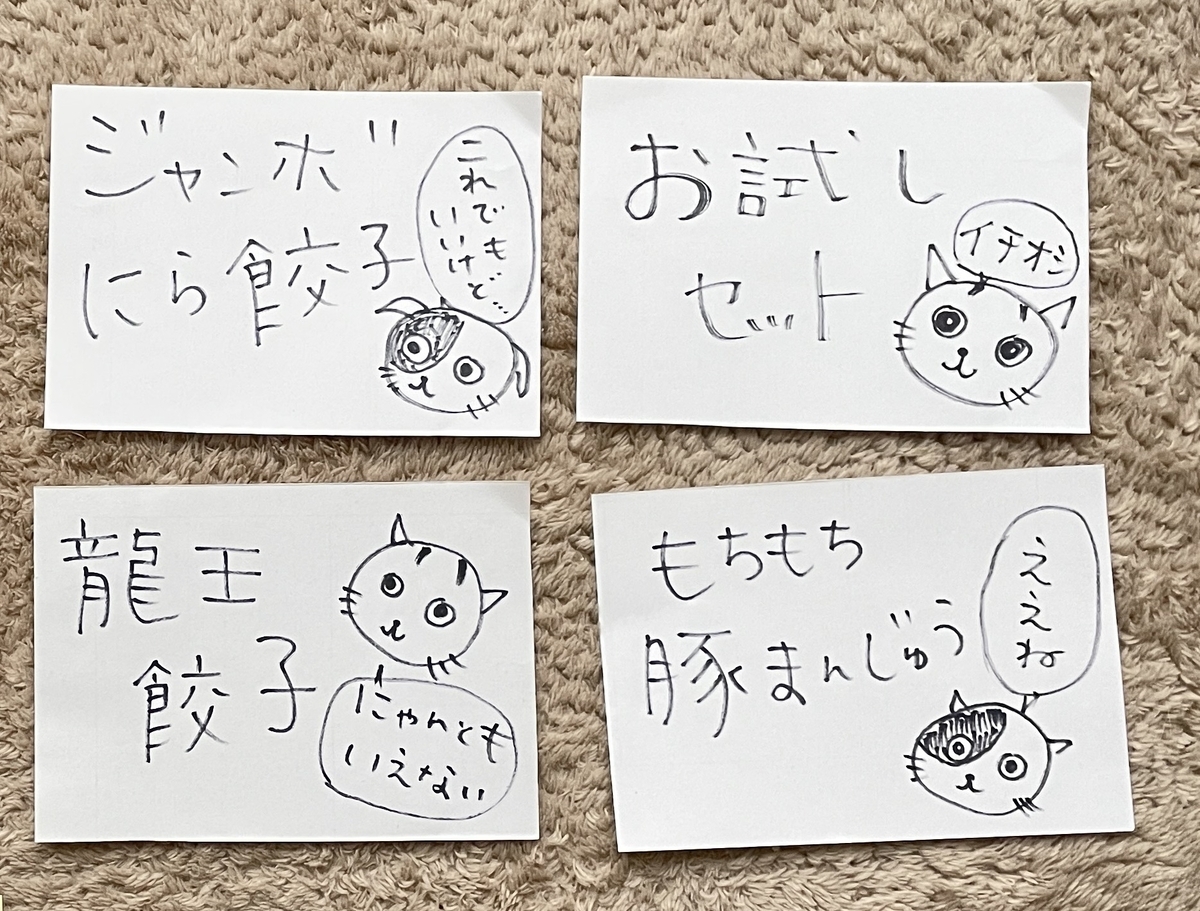 ジャンボ
にら餃子
これ
でも
いいけど…
お試し
セット
イチオシ
龍王
餃子
にゃんとも
いえない
もちもち
豚まんじゅう
ええね